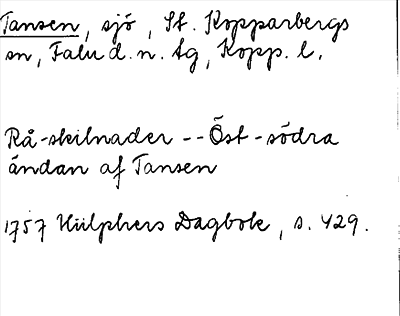 Tansen, sjö, St. Kopparbergs
sn, Falu d. n. tg, Kopp. l.
Rå-skilnader -- Öst-södra
ändan af Tansen
1757 Hülphers Dagbok, s. 429.